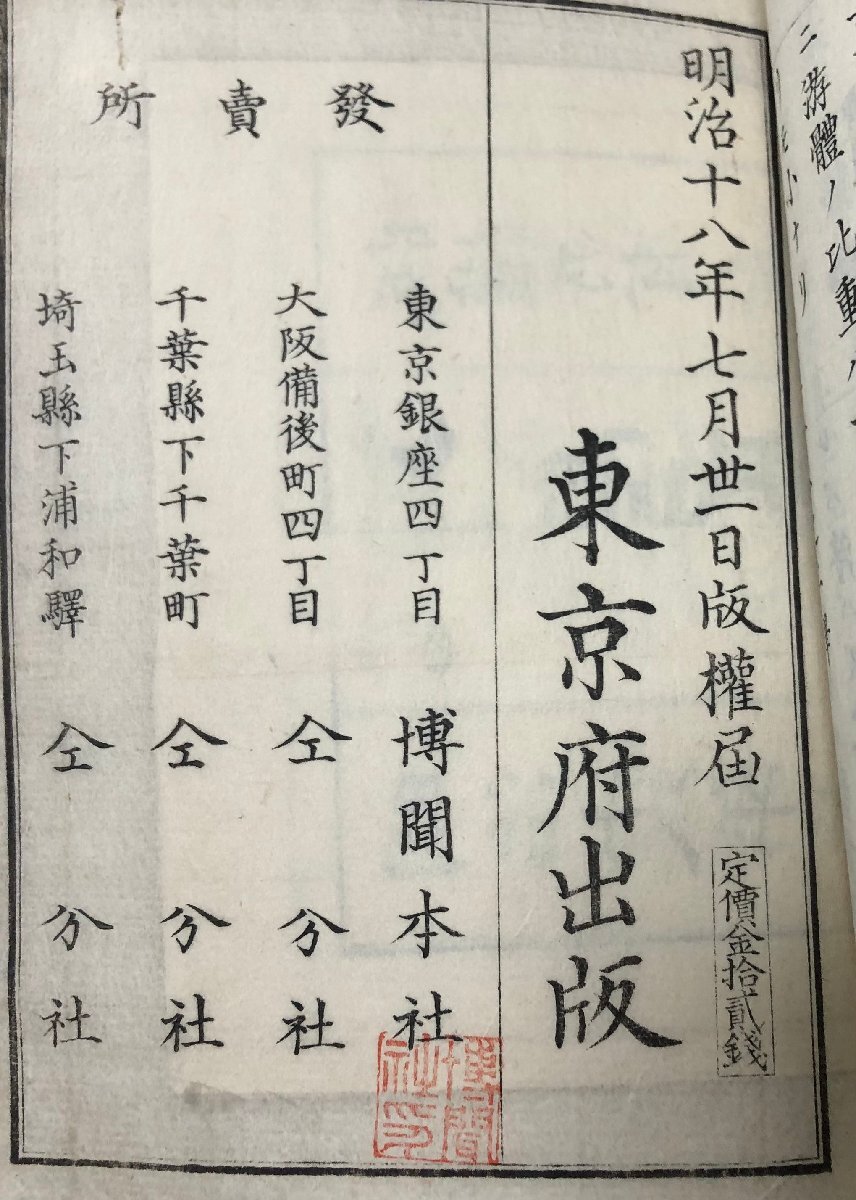 明治十八年七月卅一日版權屆
定價金拾貳錢
東京府出版
發賣所
東京銀座四丁目 博聞本社
大阪備後町四丁目 仝分社
千葉縣下千葉町 仝分社
埼玉縣下浦和驛 仝分社
博聞社印
二游體ノ比重